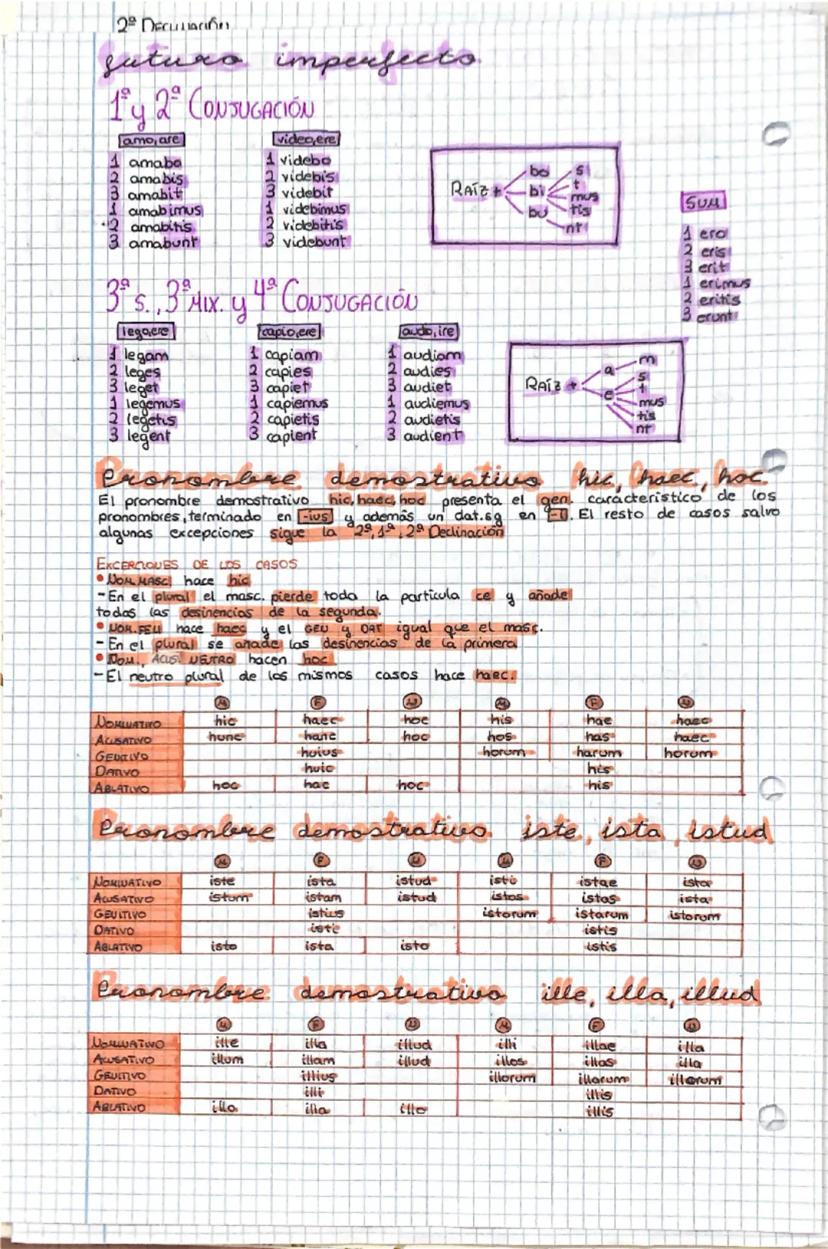 2ª Declinación
futuro imperfecto
1ª y 2ª CONJUGACIÓN
amo,are video,ere
1 amabo 1 videbo
2 amabis 2 videbis
3 amabit 3 videbit
1 amabimus 1 videbimus
2 amabitis 2 videbitis
3 amabunt 3 videbunt
RAÍZ + bo bi bu s t mus tis nt
SUM
1 ero
2 eris
3 erit
1 erimus
2 eritis
3 erunt
3ª S., 3ª MIX. y 4ª CONJUGACIÓN
lego,ere capio,ere audio,ire
1 legam 1 capiam 1 audiam
2 leges 2 capies 2 audies
3 leget 3 capiet 3 audiet
1 legemus 1 capiemus 1 audiemus
2 legetis 2 capietis 2 audietis
3 legent 3 capient 3 audient
RAÍZ + a e m s t mus tis nt
Pronombre demostrativo hic, haec, hoc.
El pronombre demostrativo hic, haec, hoc presenta el gen. característico de los
pronombres, terminado en -ius y además un dat.sg en -i. El resto de casos salvo
algunas excepciones sigue la 2ª, 1ª, 2ª Declinación
EXCEPCIONES DE LOS CASOS
• NOM. MASC. hace hic
- En el plural el masc. pierde toda la partícula ce y añade
todas las desinencias de la segunda.
• NOM. FEM. hace haec y el GEN y DAT igual que el masc.
- En el plural se añade las desinencias de la primera
• NOM., ACUS NEUTRO hacen hoc
- El neutro plural de los mismos casos hace haec.
M F N M F N
NOMINATIVO hic haec hoc his hae haec
ACUSATIVO hunc hanc hoc hos has haec
GENITIVO huius horum harum horum
DATIVO huic his
ABLATIVO hoc hac hoc his
Pronombre demostrativo iste, ista, istud
M F N M F N
NOMINATIVO iste ista istud isti istae ista
ACUSATIVO istum istam istud istos istas ista
GENITIVO istius istorum istarum istorum
DATIVO isti istis
ABLATIVO isto ista isto istis
Pronombre demostrativo ille, illa, illud
M F N M F N
NOMINATIVO ille illa illud illi illae illa
ACUSATIVO illum illam illud illos illas illa
GENITIVO illius illorum illarum illorum
DATIVO illi illis
ABLATIVO illo illa illo illis